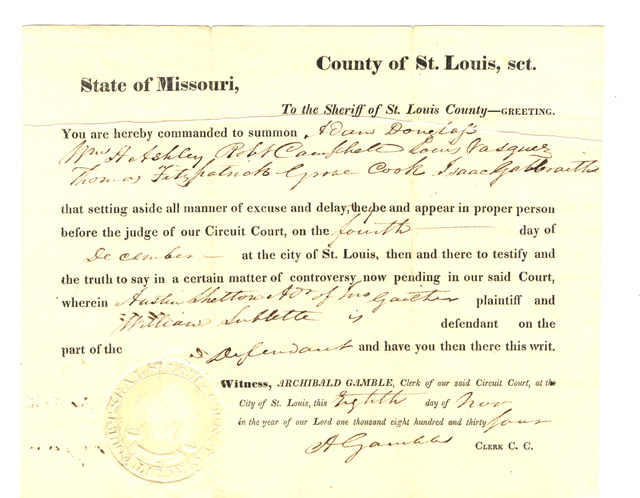 County of St. Louis, sct.
State of Missouri,
To the Sheriff of St. Louis County—GREETING.
You are hereby commanded to summon Adam Douglass
Wm H Ashley Robt Campbell Louis Vasquez
Thomas Fitzpatrick Grose Cook Isaac Galbraith
that setting aside all manner of excuse and delay, they be and appear in proper person
before the judge of our Circuit Court, on the fourth day of
December at the city of St. Louis, then and there to testify and
the truth to say in a certain matter of controversy now pending in our said Court,
wherein Austin Shelton Adr of Jno Gaither plaintiff and
William Sublette is defendant on the
part of the Defendant and have you then there this writ.
Witness, ARCHIBALD GAMBLE, Clerk of our said Circuit Court, at the
City of St. Louis, this Eighth day of Nov
in the year of our Lord one thousand eight hundred and thirty four
A Gamble CLERK C. C.